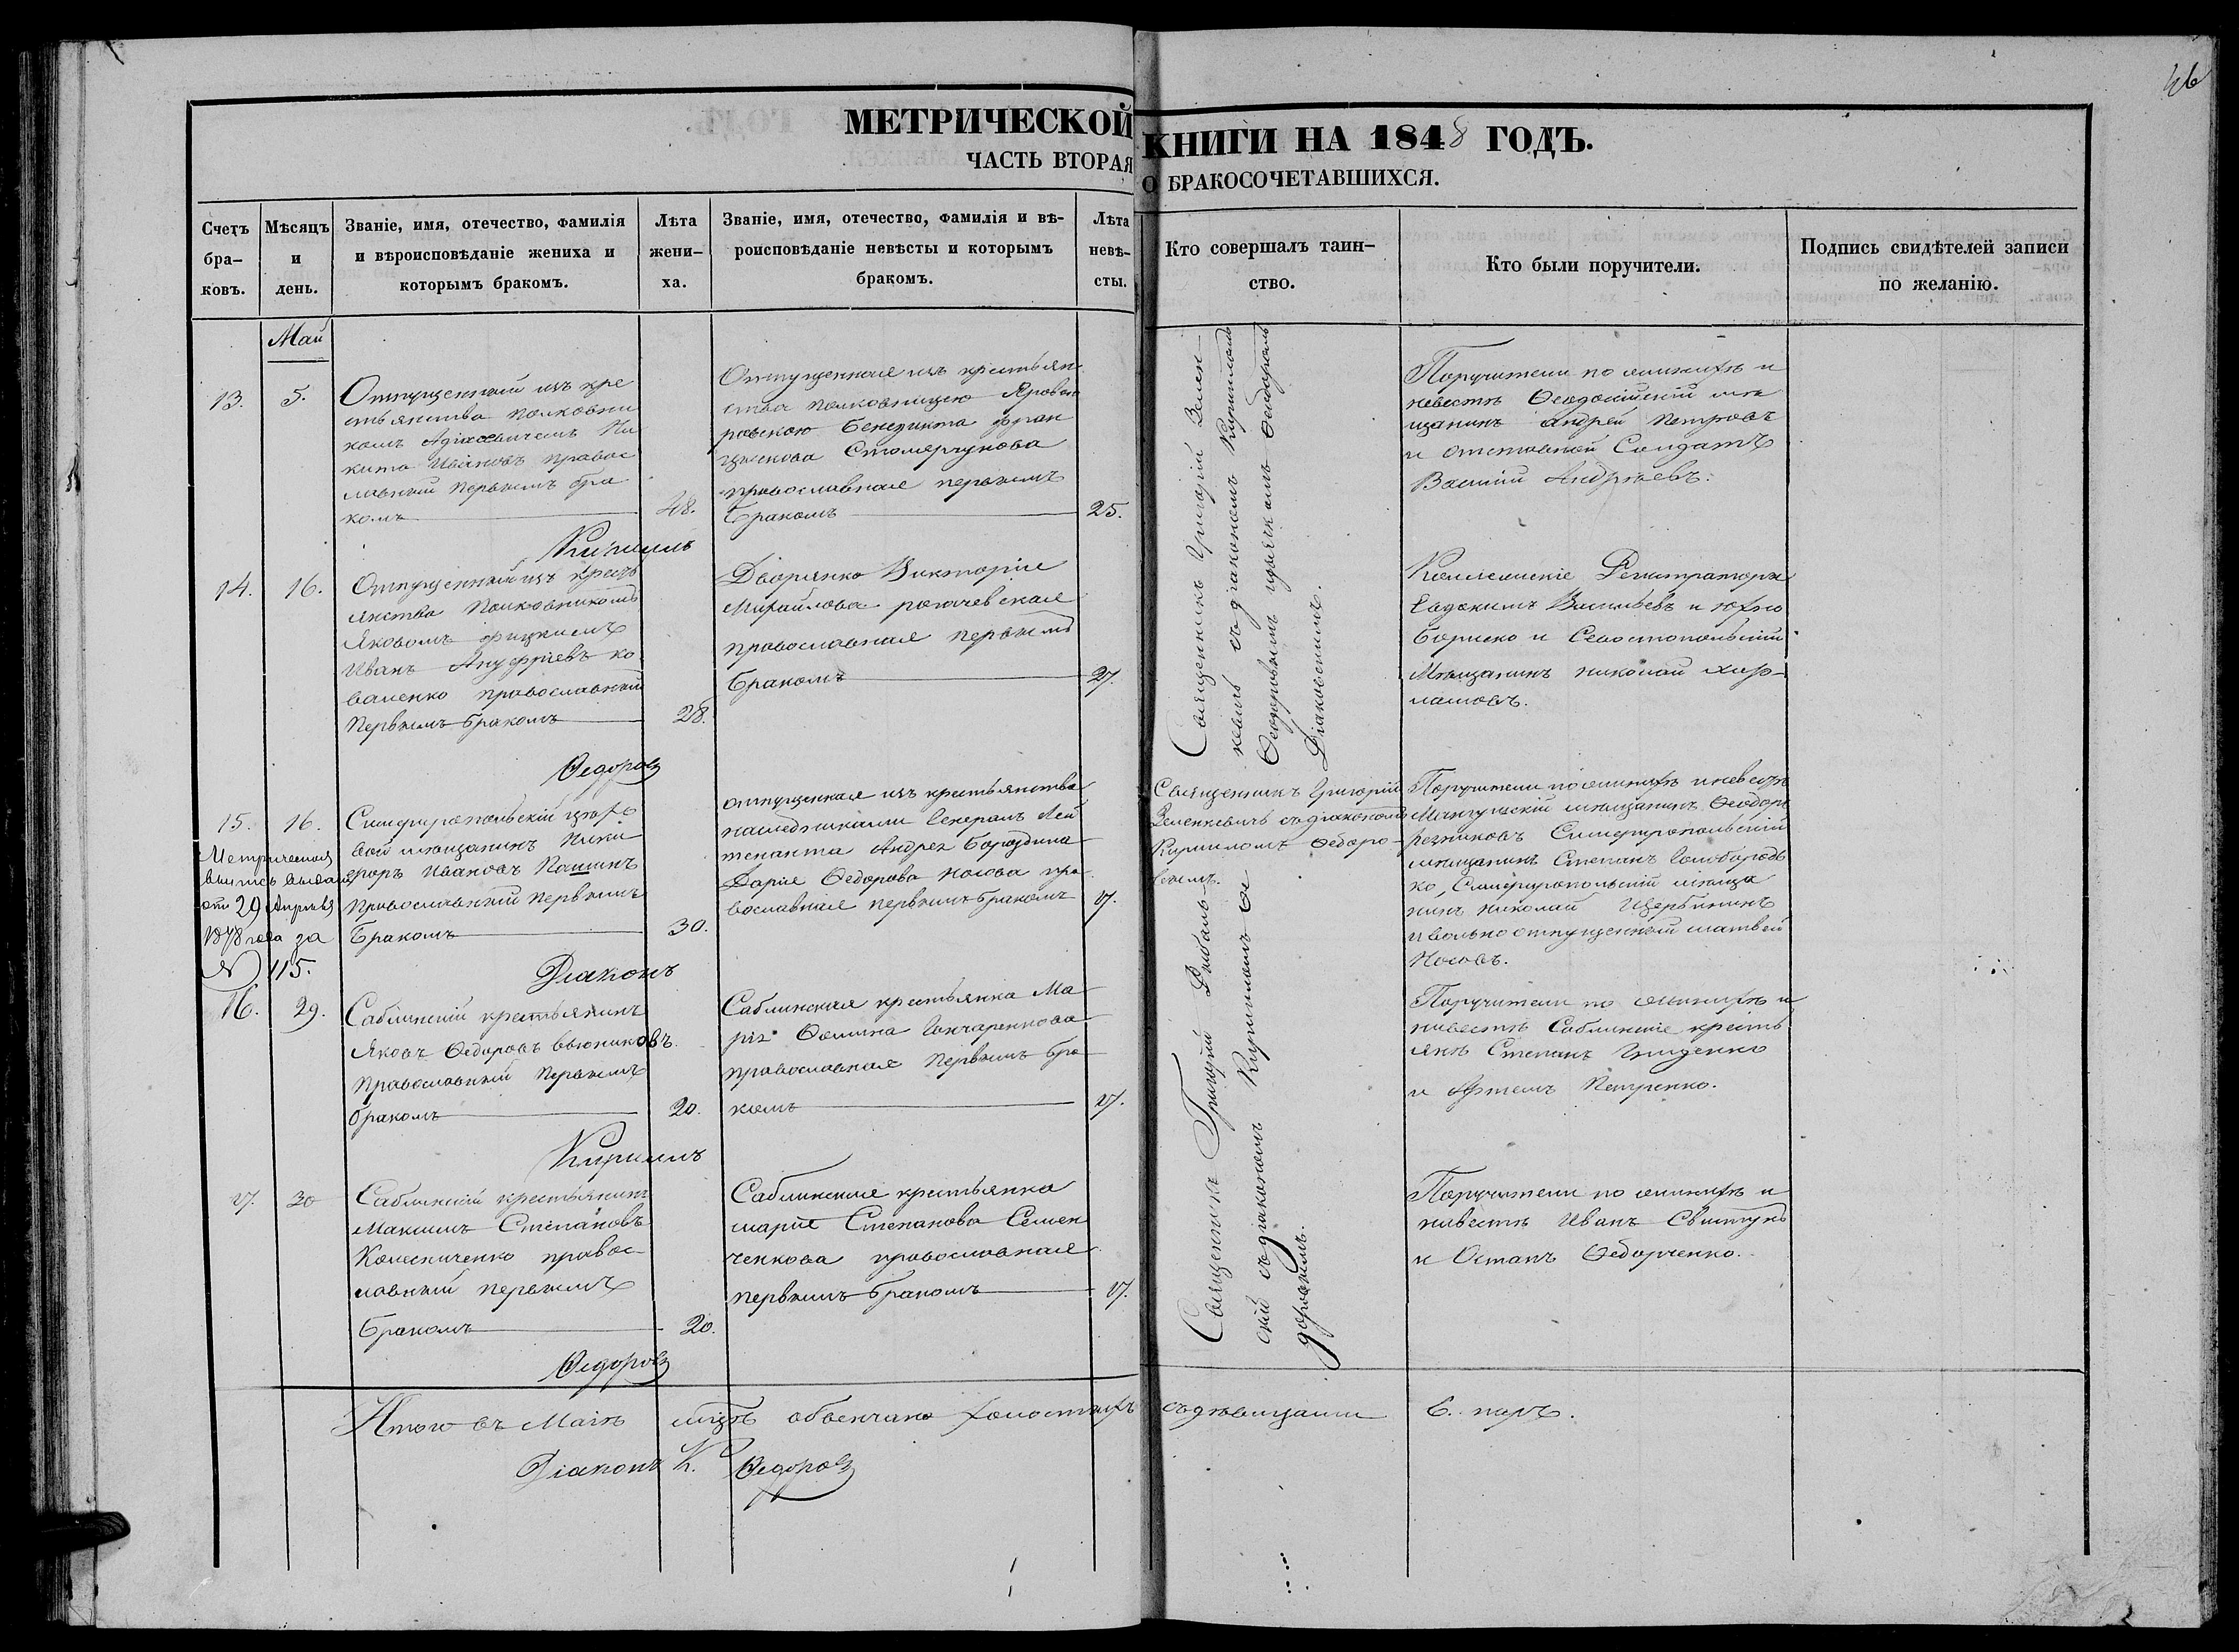 МЕТРИЧЕСКОЙ КНИГИ НА 1848 ГОДЪ.
ЧАСТЬ ВТОРАЯ О БРАКОСОЧЕТАВШИХСЯ.
Счетъ бра-
ковъ.
Мѣсяцъ
и
день.
Званіе, имя, отечество, фамилія
и вѣроисповѣданіе жениха и
которымъ бракомъ.
Лѣта
жени-
ха.
Званіе, имя, отечество, фамилія и вѣ-
роисповѣданіе невѣсты и которымъ
бракомъ.
Лѣта
невѣ-
сты.
Кто совершалъ таин-
ство.
Кто были поручители.
Подпись свидѣтелей записи
по желанію.
Май
13.
5.
Отпущенный изъ кре
стьянства Полковни
комъ Ни
кита Ивановъ правос
лавный первымъ бра
комъ
48.
Отпущенная изъ крестьян
ства полковницею
Бенедикта Фран
цискова
православная первымъ
Бракомъ
25.
Священникъ Григорий Зелен
кевичъ съ діакономъ Кирилломъ
Федоровымъ Федоромъ
Діаковскимъ.
Поручители по женихѣ и
невестѣ Феодосійскій мѣ
щанинъ Андрей Петровъ
и отставной Солдатъ
Василій Андрѣевъ.
Кириллъ
14.
16.
Отпущенный изъ крест
янства Полковникомъ
Яковомъ
Иванъ Ануфріевъ Ко
валенко православный
Первымъ Бракомъ
28.
Дворянка Викторія
Михайлова рогачевская
православная первымъ
Бракомъ
27.
Колежскіе Регистраторы
Евдокимъ Васильевъ и
Бориско и Севостопольскій
Мѣщанинъ Николай
Федоровъ
15.
16.
Симферопольскій цехо
вой мѣщанинъ Ники
форъ Ивановъ Пашинъ
Православный первымъ
Бракомъ
30.
Метрическая
выпись выдана
отъ 29 Апрѣля
1878 года за
№ 115.
отпущенная изъ крестьянства
наследниками Генералъ Лей
тенанта Андрея Бороздина
Дарія Федорова Носова пра
вославная первымъ Бракомъ
17.
Священникъ Григорій
Зеленкевичъ съ діакономъ
Кирилломъ Федоро-
вымъ.
Поручители по женихѣ и невестѣ
мѣщанинъ Феодоръ
Резниковъ Симферопольскій
мѣщанинъ Степанъ Голобородь
ко, Симферопольскій мѣща
нинъ Николай Щербининъ
и вольноотпущенный матвей
Носовъ.
Діаконъ
16.
29.
Саблинскій крестьянинъ
Яковъ Федоровъ Вьюниковъ.
Православный Первымъ
бракомъ
20.
Саблинская крестьянка Ма
рія Фомина Гончаренкова
православная Первымъ бра
комъ
17.
Священникъ Григорій Рыбаль
скій съ діакономъ Кирилломъ Фе
доровымъ.
Поручители по женихѣ и
невестѣ Саблинскіе кресть
янѣ Степанъ Гриценко
и Артемъ Петренко.
Кириллъ
17.
30
Саблинскій крестьянинъ
Максимъ Степановъ
Колесниченко правос-
лавный первымъ
Бракомъ
20.
Саблинская крестьянка
марія Степанова Семен
ченкова православная
первымъ бракомъ
17.
Поручители по женихѣ и
невестѣ Иванъ Свистунъ
и Остапъ Федорченко.
Федоровъ
Итого въ Маіѣ мцѣ обвенчано холостыхъ съ дѣвицами 6. паръ.
Діаконъ К. Федоровъ